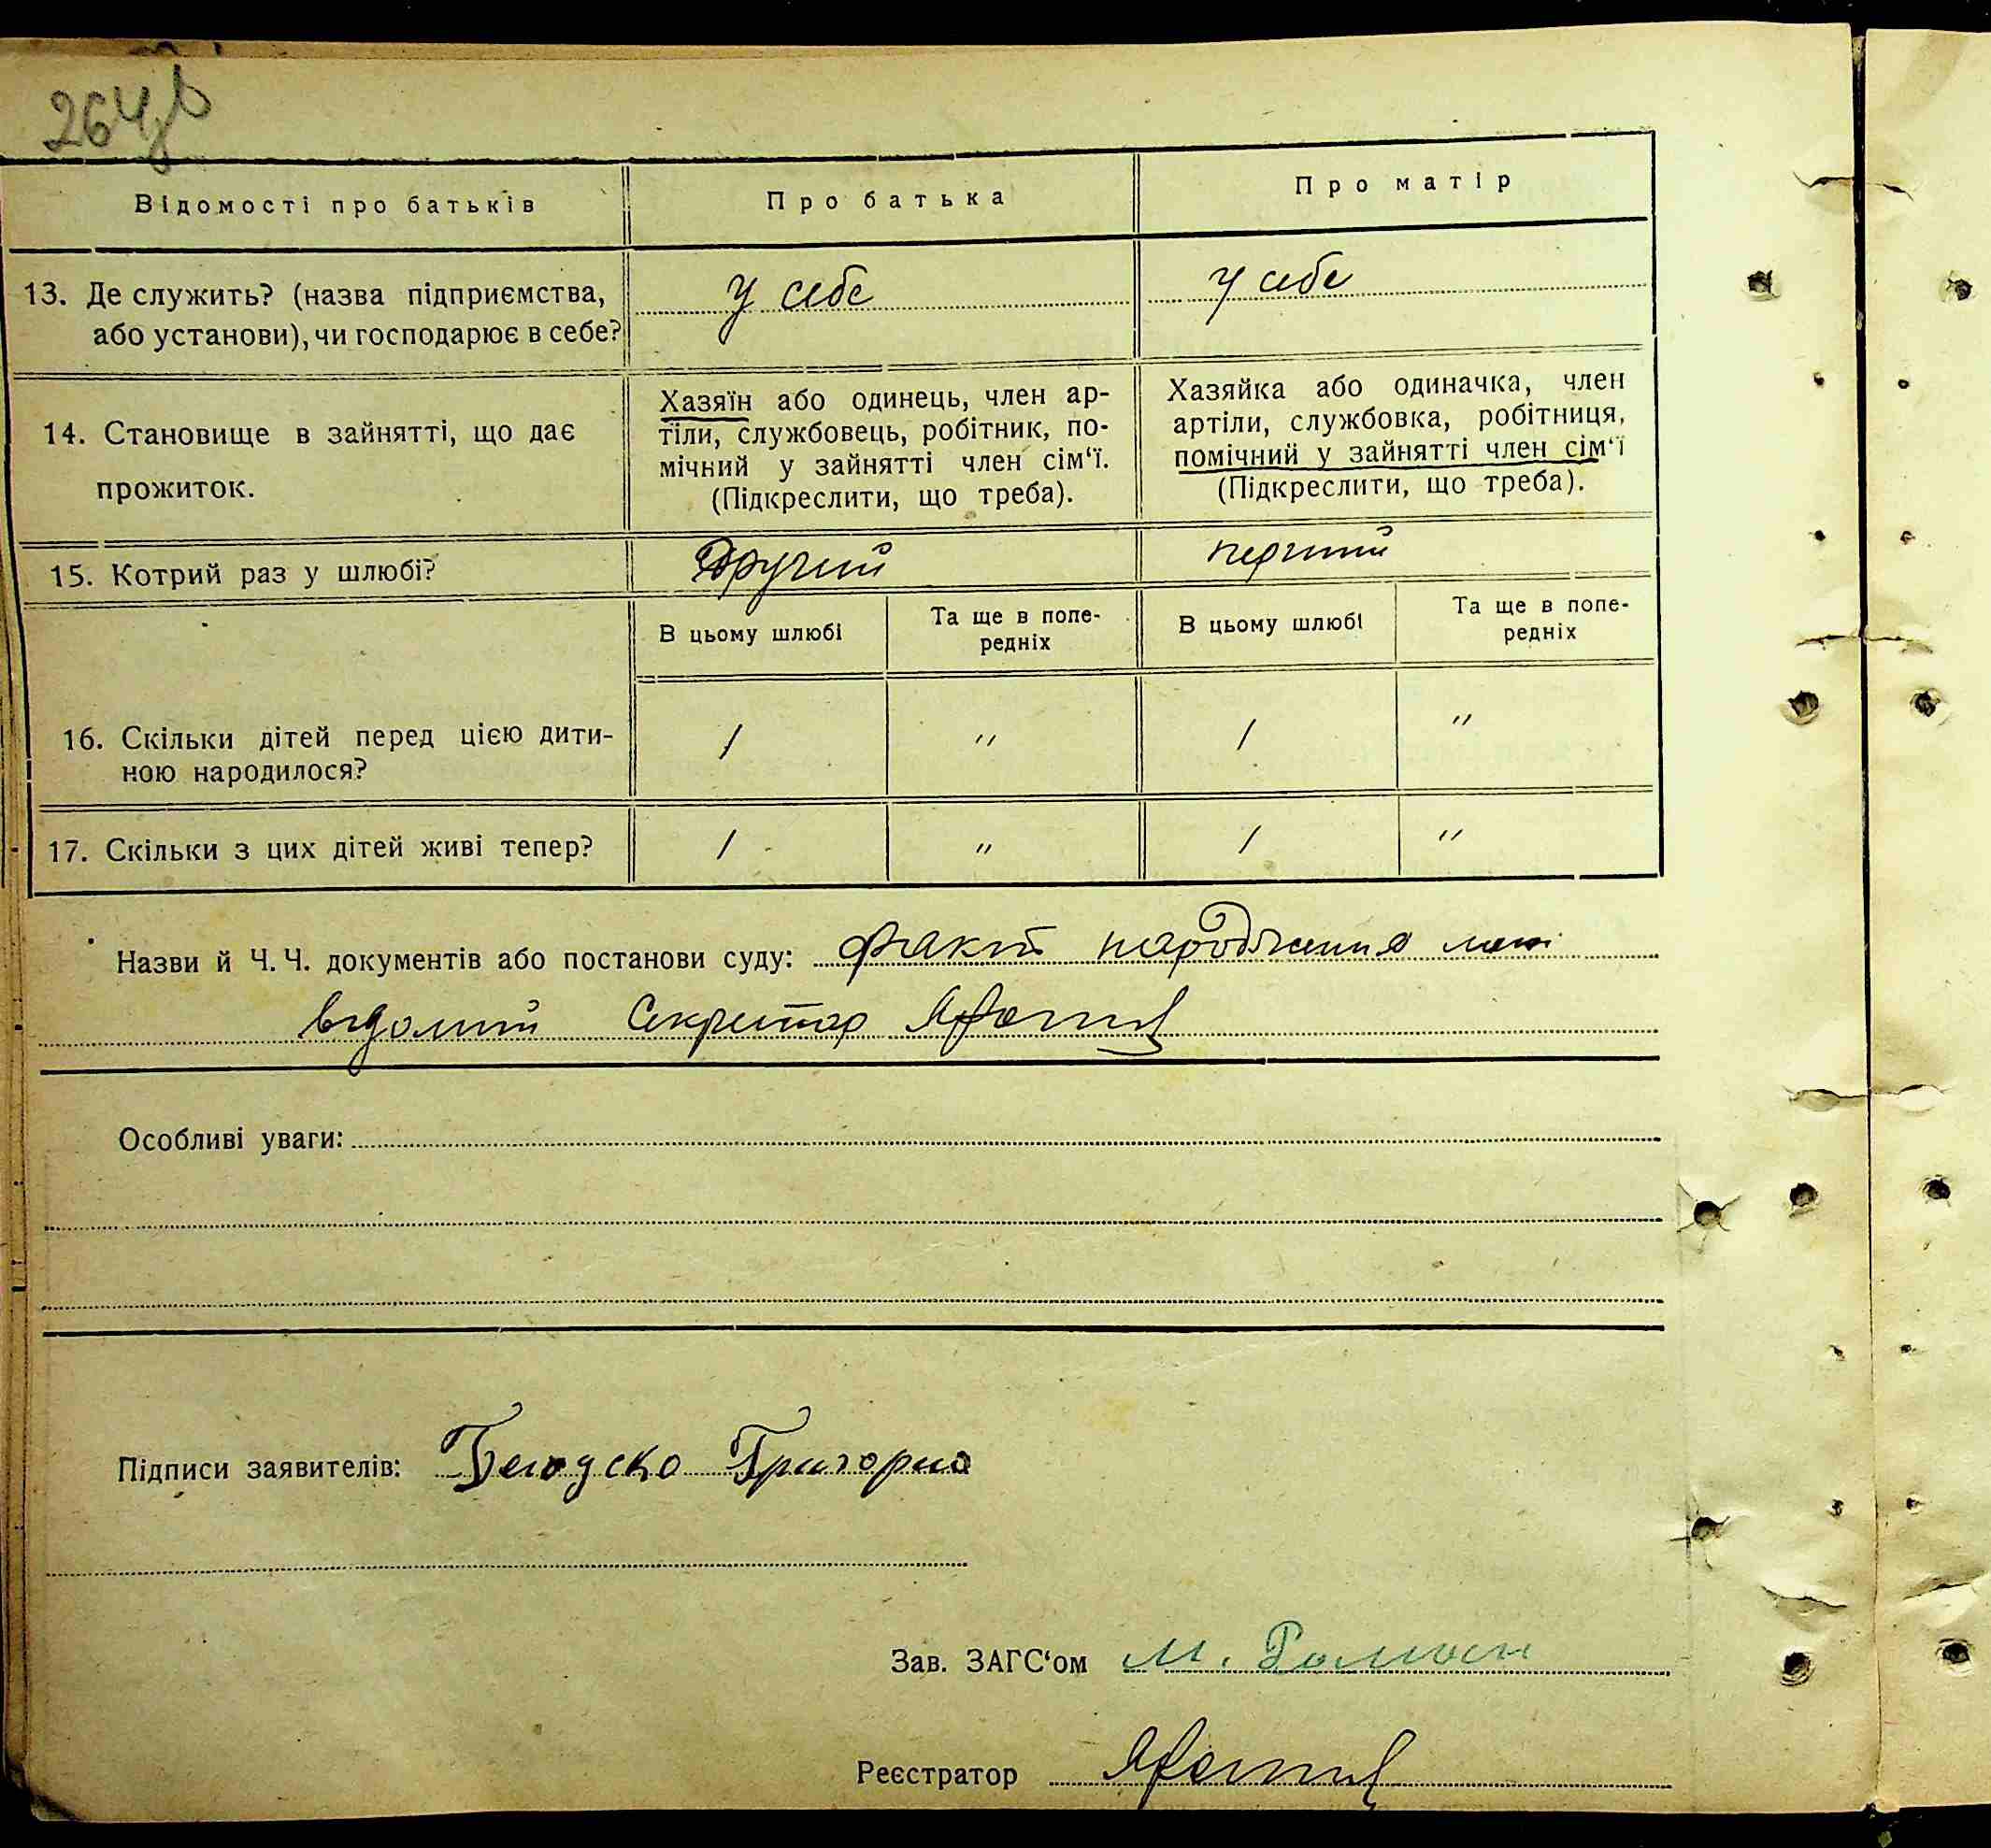 264
Відомості про батьків
Про батька
Про матір
13. Де служить? (назва підприємства,
або установи), чи господарює в себе?
у себе
у себе
14. Становище в зайнятті, що дає
прожиток.
Хазяїн або одинець, член ар-
тіли, службовець, робітник, по-
мічний у зайнятті член сім‘ї.
(Підкреслити, що треба).
Хазяйка або одиначка, член
артіли, службовка, робітниця,
помічний у зайнятті член сім‘ї
(Підкреслити, що треба).
15. Котрий раз у шлюбі?
Другий
перший
В цьому шлюбі
Та ще в попе-
редніх
В цьому шлюбі
Та ще в попе-
редніх
16. Скільки дітей перед цією дити-
ною народилося?
1
"
1
"
17. Скільки з цих дітей живі тепер?
1
"
1
"
Назви й Ч. Ч. документів або постанови суду: факт народження мені
відомий Секретар
Особливі уваги:
Підписи заявителів:
Зав. ЗАГС‘ом М.
Реєстратор